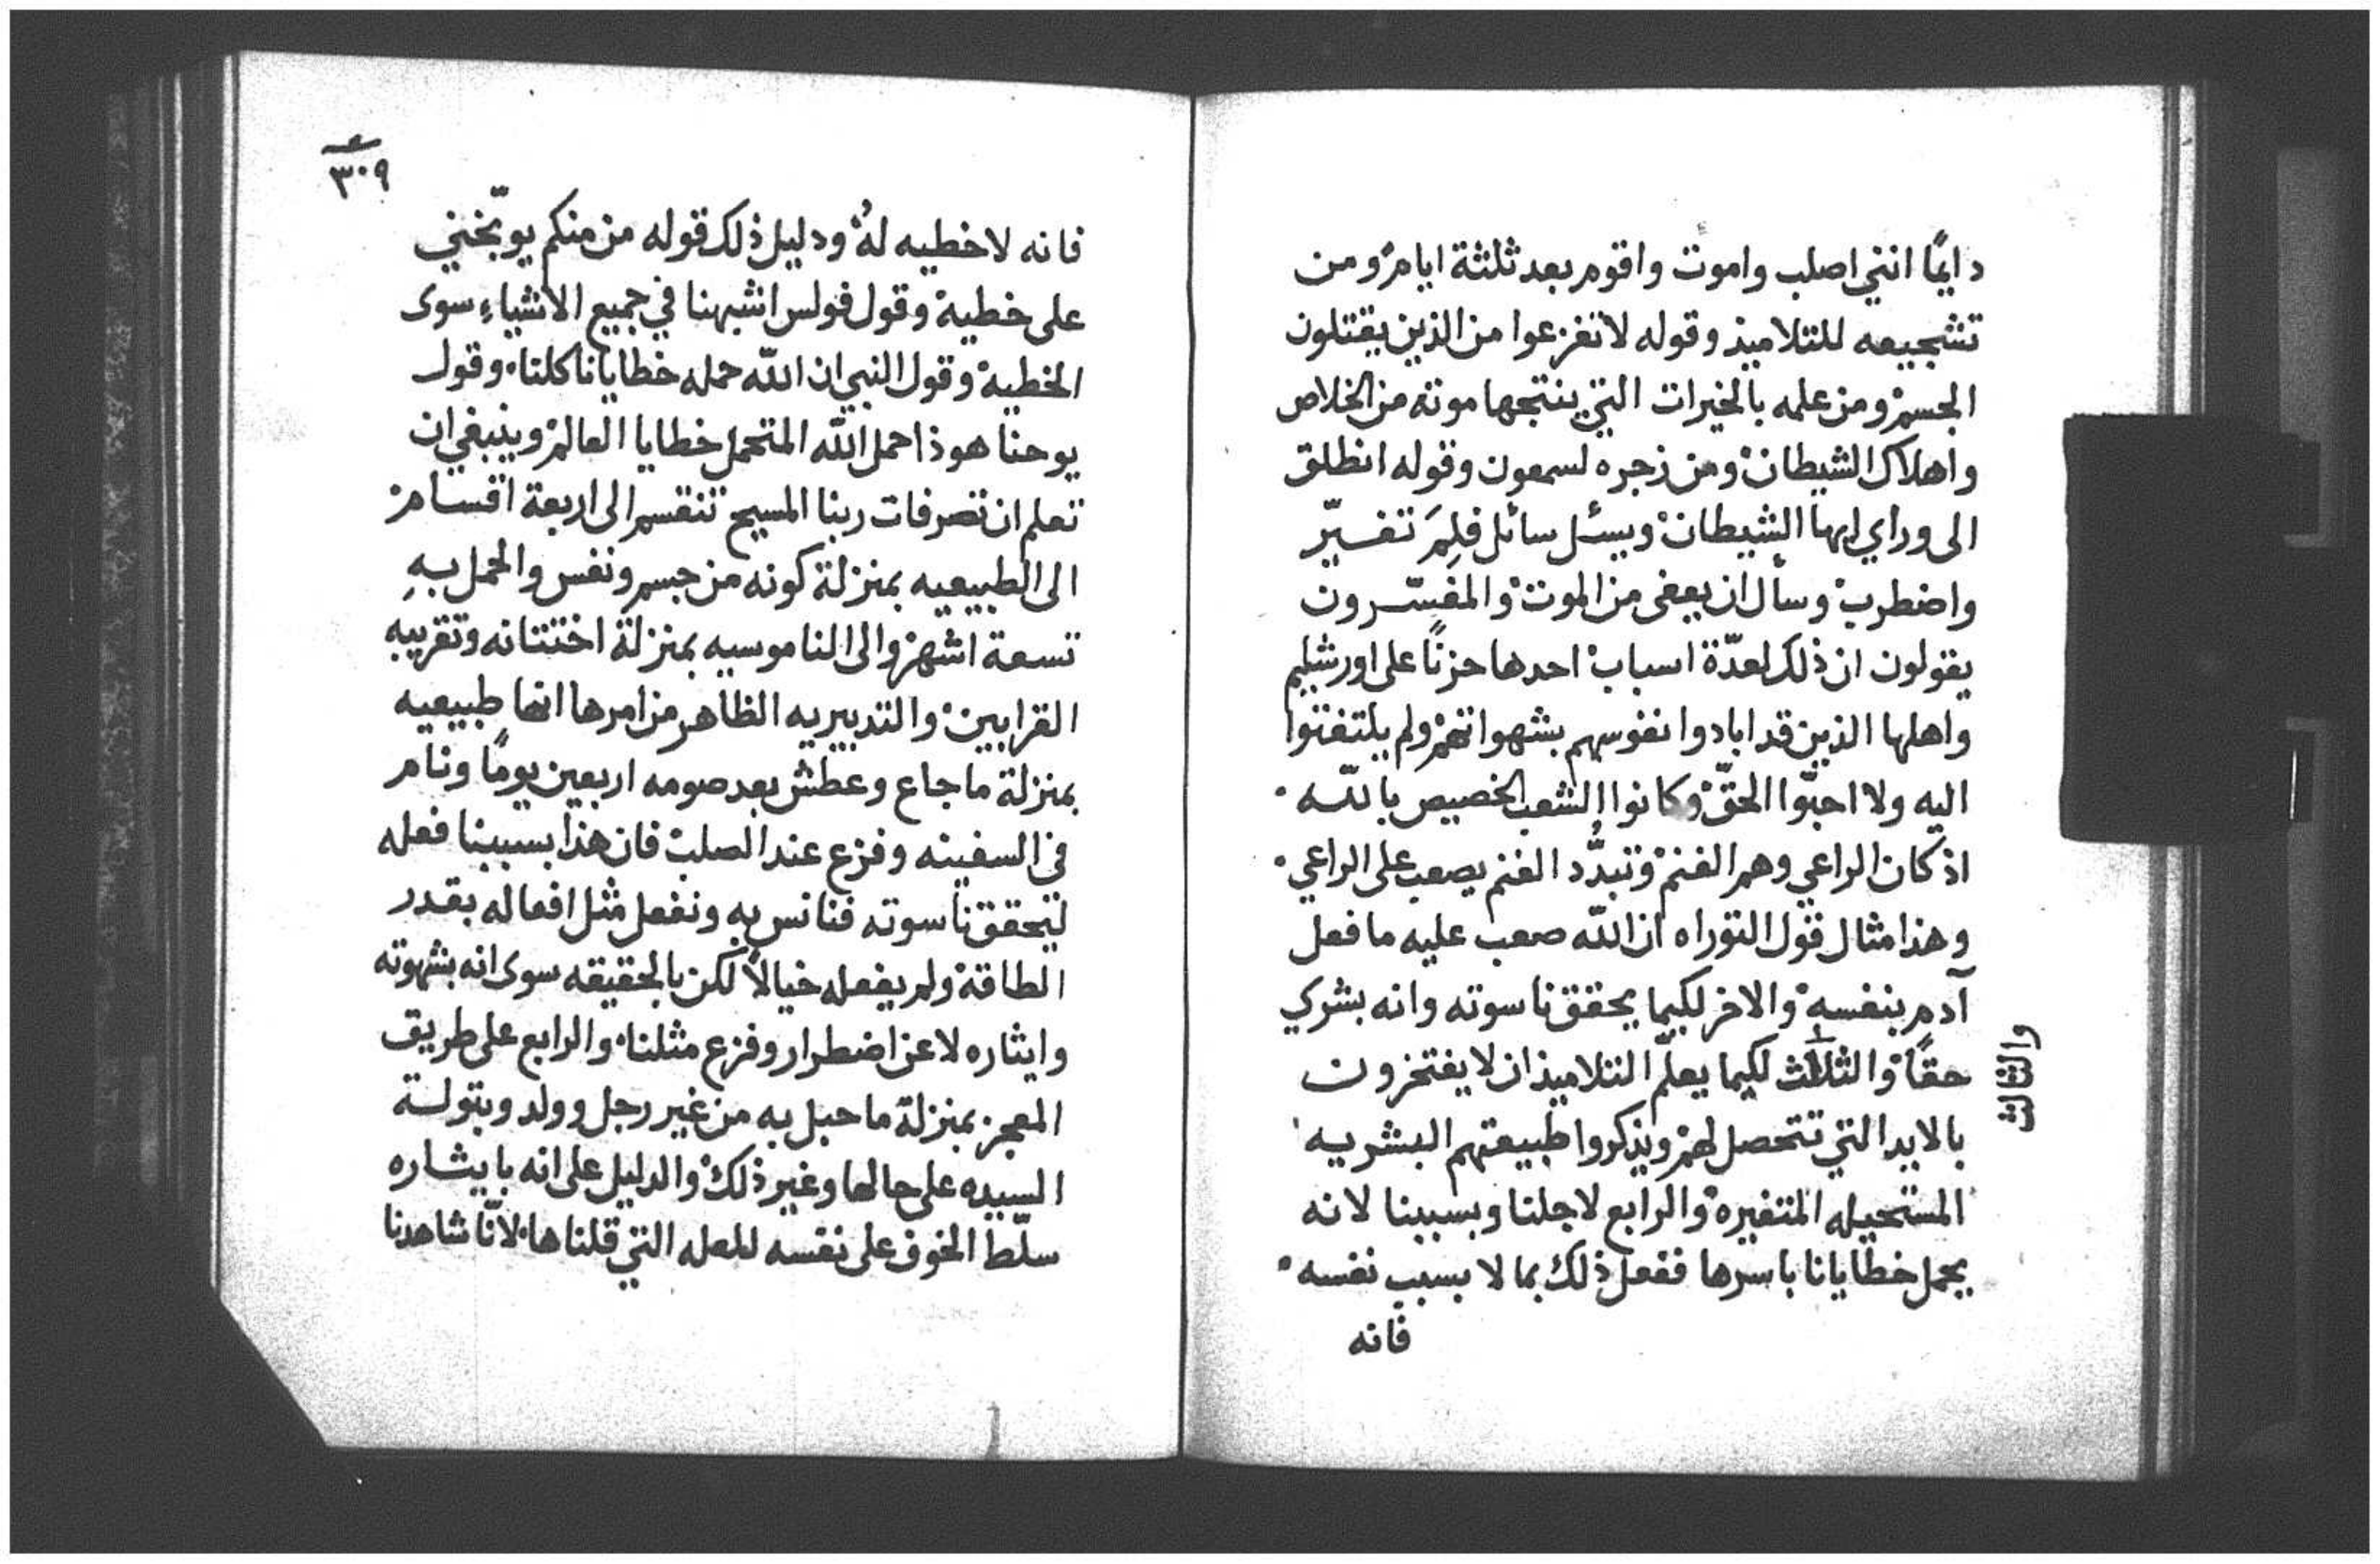 دايمًا انني اصلب واموت واقوم بعد ثلثة ايام ومن
تشجيعه للتلاميذ وقوله لاتفزعوا من الذين يقتلون
الجسم ومن علمه بالخيرات التي ينتجها موته من الخلاص
واهلاك الشيطان ومن زجره لسمعون وقوله انطلق
الى وراي ايها الشيطان ويسئل سائل فلِمَ تغسيّر
واضطرب وسأل ان يعفى من الموت والمفسّرون
يقولون ان ذلك لعدّة اسباب احدها حزنًا على اورشليم
واهلها الذين قد ابادوا نفوسهم بشهواتهم ولم يلتفتوا
اليه ولا احبّوا الحقّ وكانوا الشعب الخصيص بالله
اذ كان الراعي وهم الغنم وتبدُّد الغنم يصعب على الراعي
وهذا مثال قول التوراه ان الله صعب عليه ما فعل
آدم بنفسه والاخر لكيما يحقق ناسوته وانه بشري
حقًا والثلاث لكيما يعلّم التلاميذ ان لا يفتخرون
والثالث
بالايد التي تتحصل لهم ويذكروا طبيعتهم البشريه
المستحيله المتغيره والرابع لاجلنا وبسببنا لانه
يحمل خطايانا باسرها ففعل ذلك بما لا بسبب نفسه
فانه
٣٠٩
فانه لاخطيه لهُ ودليل ذلك قوله من منكم يوبّخني
على خطية وقول فولس اشبهنا في جميع الاشياءِ سوى
الخطية وقول النبي ان الله حمله خطايانا كلنا وقول
يوحنا هوذا حمل الله المتحمل خطايا العالم وينبغي ان
تعلم ان تصرفات ربنا المسيح تنقسم الى اربعة اقسام
الى الطبيعيه بمنزلة كونه من جسم ونفس والحمل بهِ
تسعة اشهر والى الناموسيه بمنزلة اختتانه وتقريبه
القرابين والتدبيريه الظاهر من امرها انها طبيعيه
بمنزلة ما جاع وعطش بعد صومه اربعين يومًا ونام
في السفينه وفزع عند الصلب فان هذا بسببنا فعله
لتحقق ناسوته فنانس به ونفعل مثل افعاله بقدر
الطاقة ولم يفعله خيالاً لكن بالحقيقه سوى انه بشهوته
وايثاره لا عن اضطرار وفزع مثلنا والرابع على طريق
المعجز بمنزلة ما حبل به من غير رجل وولد وبتولة
السيده على حالها وغير ذلك والدليل على انه بايثاره
سلّط الخوف على نفسه للعله التي قلناها لانّا شاهدنا